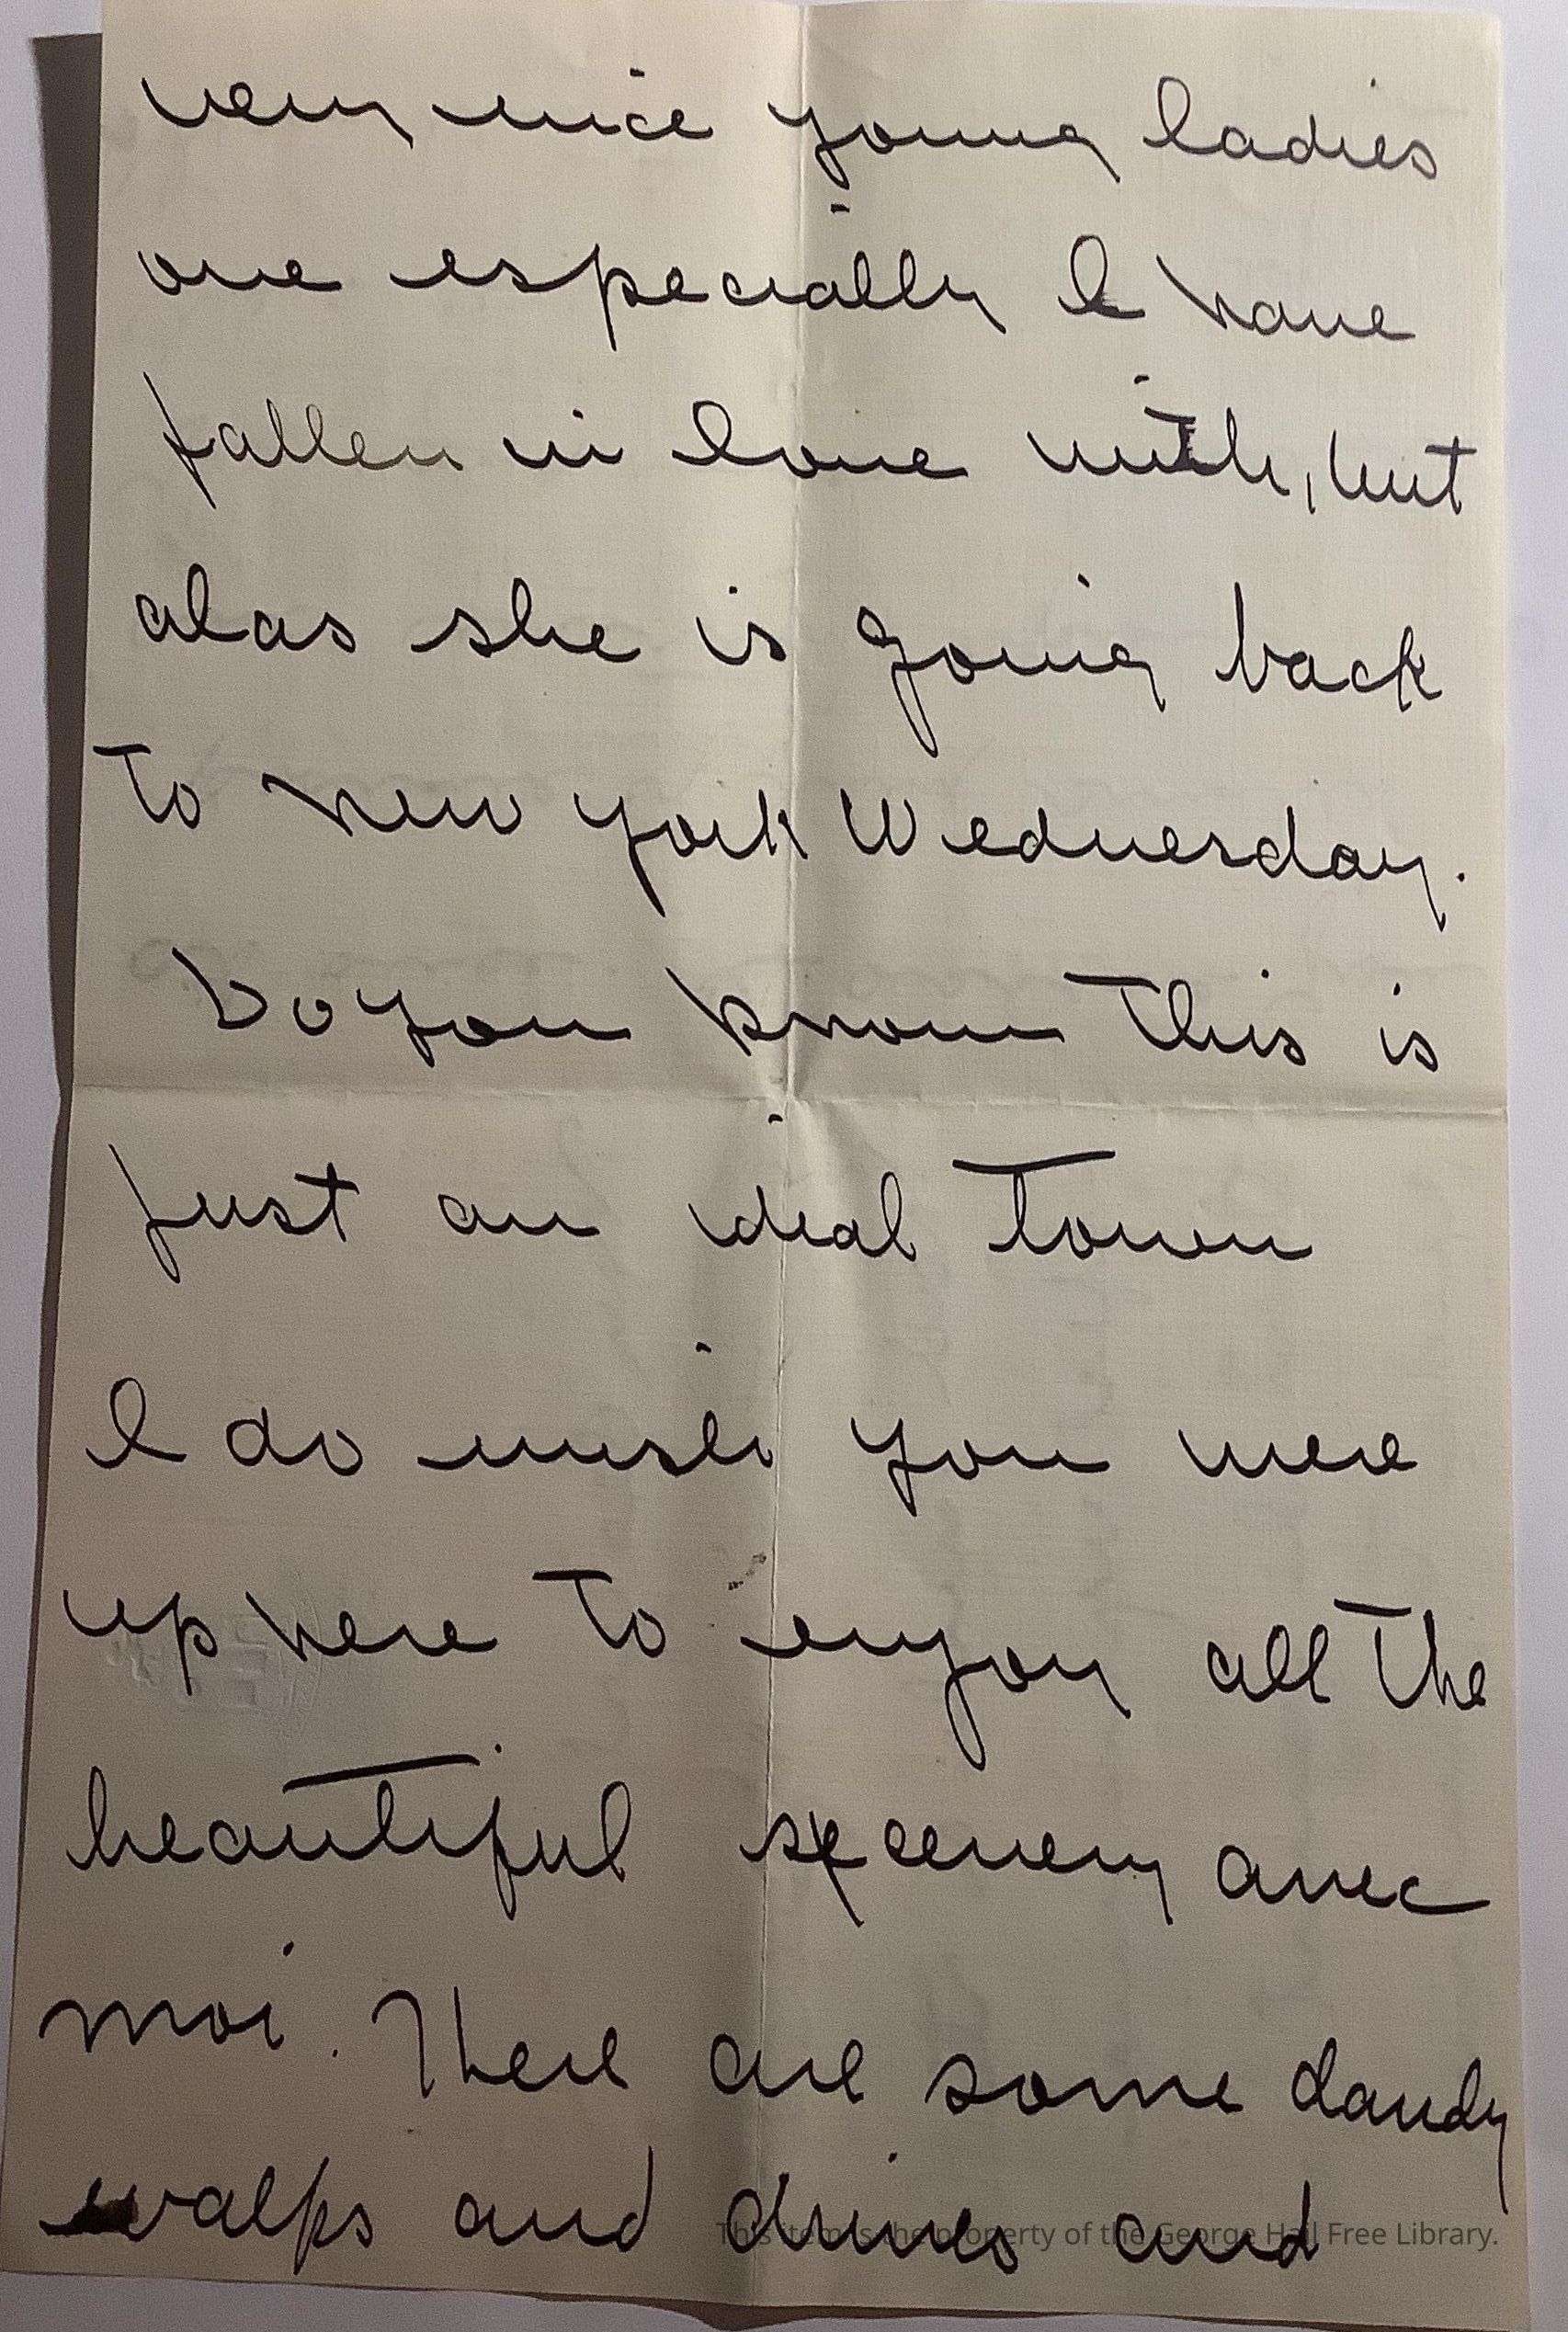 very nice young ladies
one especially I have
fallen in love with, but
alas she is going back
to new york Wednesday.
Do you know this is
just an ideal town
I do wish you were
up here to enjoy all the
beautiful scenery avec
moi. There are some dandy
walks and drives and
This item is the property of the George Hail Free Library.